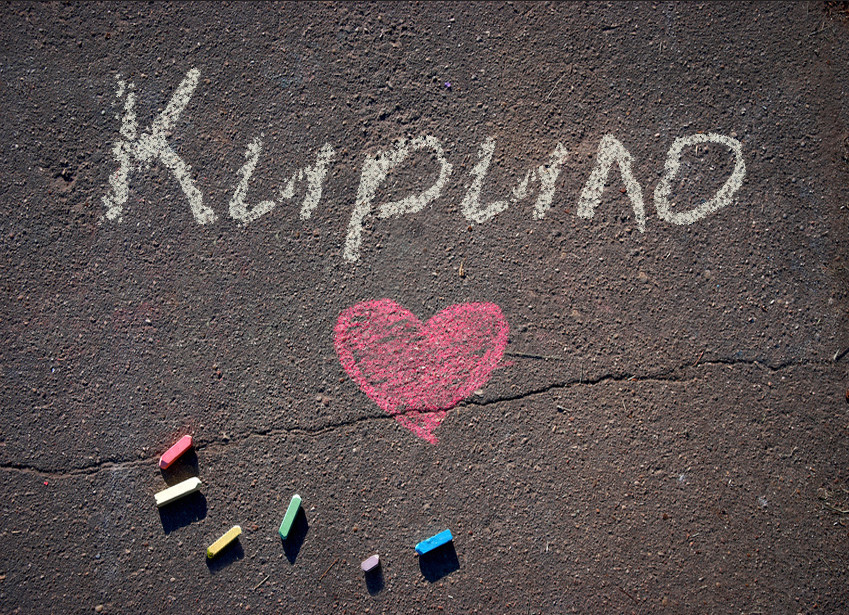 Кирило